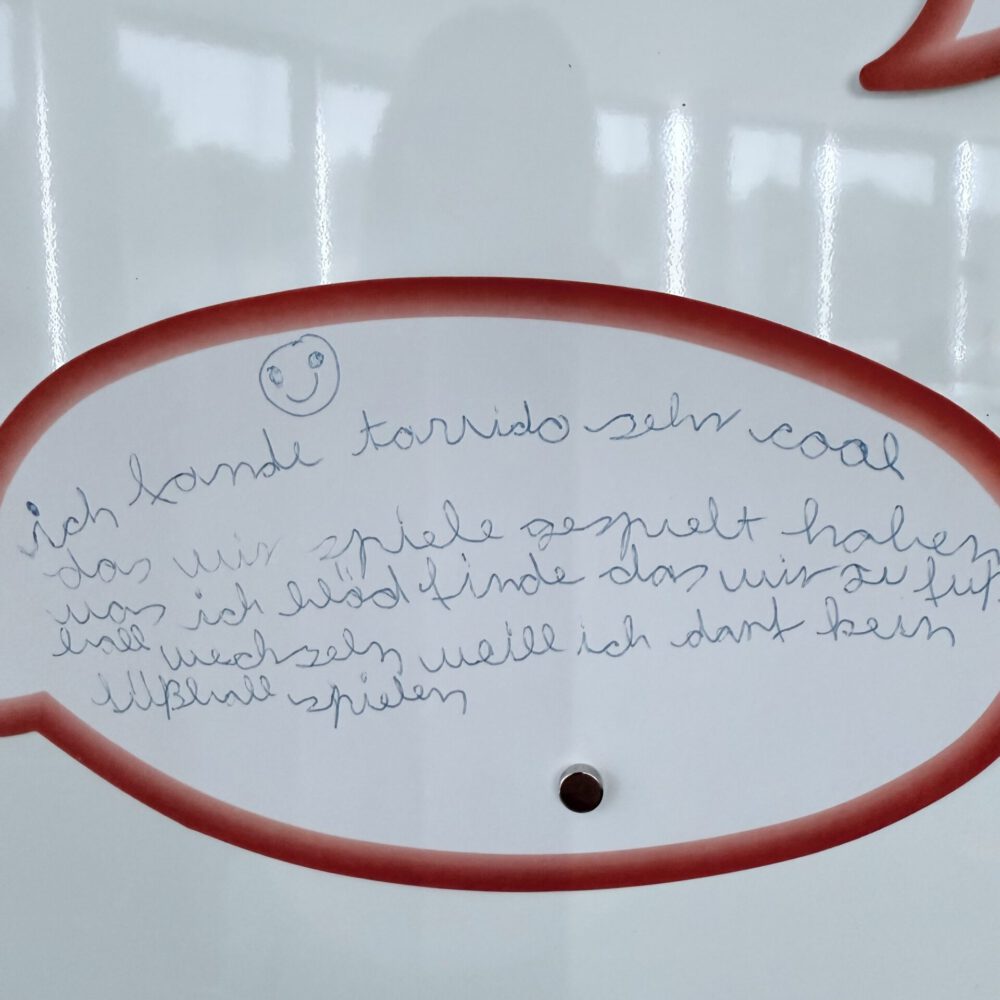 ich fande torrido sehr cool
das wir spiele gespielt haben
was ich blöd finde das wir zu fuß
ball wechseln weill ich darf kein
fußball spielen